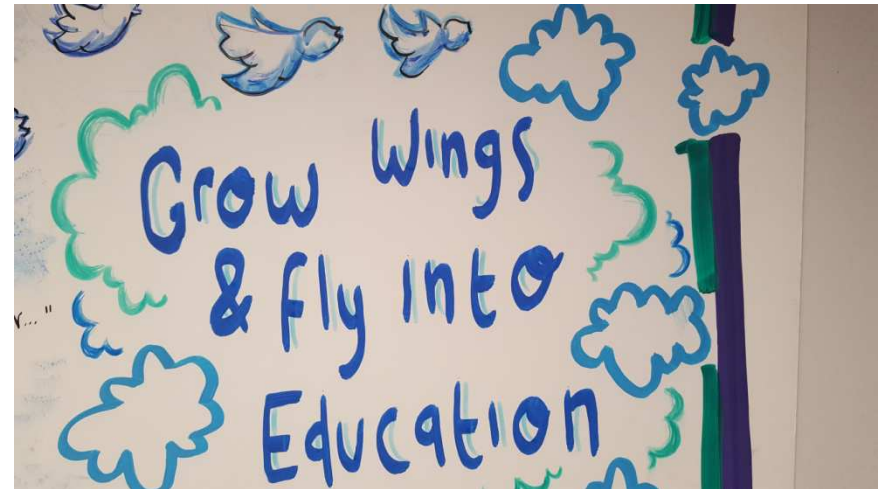 Grow Wings
& fly into
Education
r... "